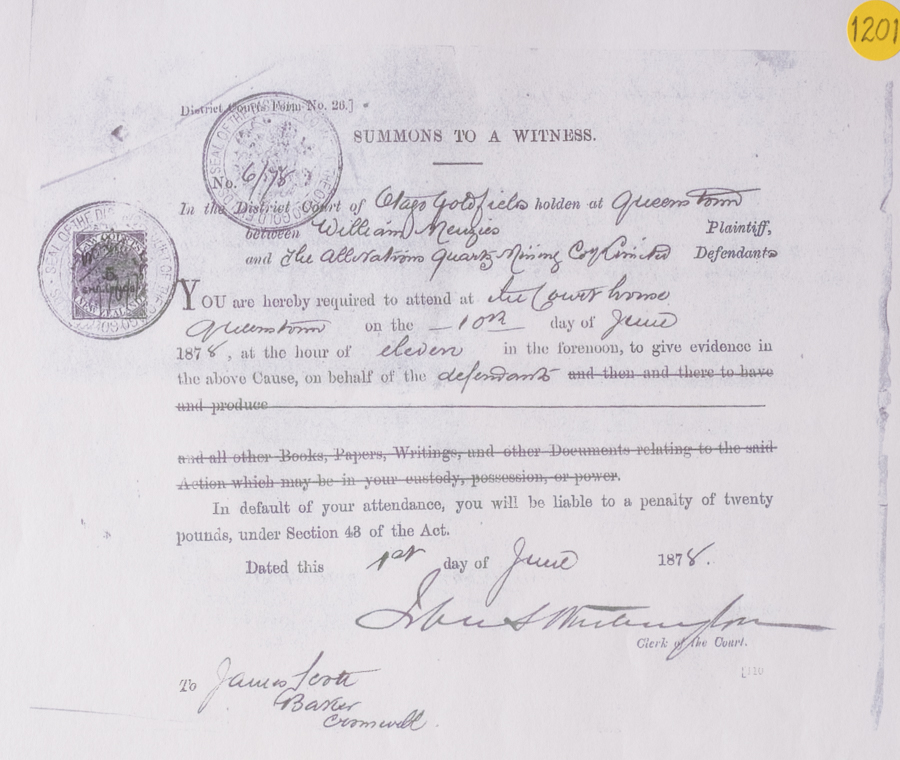 1201
District Courts Form No. 26.]
SUMMONS TO A WITNESS.
No. 6/78
In the District Court of Otago Goldfields holden at Queenstown
between William Menzies Plaintiff,
and The Quartz Mining Coy Limited Defendants
YOU are hereby required to attend at the Court house
Queenstown on the 10th day of June
1878, at the hour of eleven in the forenoon, to give evidence in
the above Cause, on behalf of the defendants and then and there to have
and produce
and all other Books, Papers, Writings, and other Documents relating to the said
Action which may be in your custody, possession, or power.
In default of your attendance, you will be liable to a penalty of twenty
pounds, under Section 43 of the Act.
Dated this 1st day of June 1878.
Clerk of the Court.
To James Scott
Baker
Cromwell.